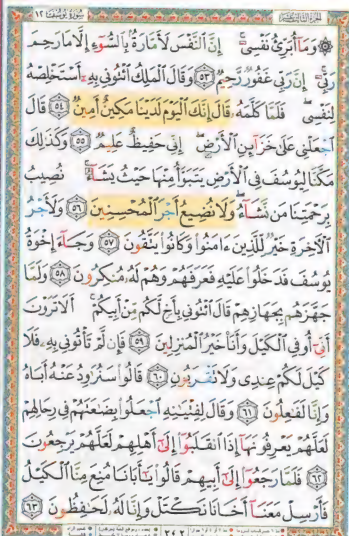 سُورَةُ يُوسُفَ ١٢
۞ وَمَآ أُبَرِّئُ نَفْسِىٓ ۚ إِنَّ ٱلنَّفْسَ لَأَمَّارَةٌۢ بِٱلسُّوٓءِ إِلَّا مَا رَحِمَ
رَبِّىٓ ۚ إِنَّ رَبِّى غَفُورٌ رَّحِيمٌ ﴿٥٣﴾ وَقَالَ ٱلْمَلِكُ ٱئْتُونِى بِهِۦٓ أَسْتَخْلِصْهُ
لِنَفْسِى ۖ فَلَمَّا كَلَّمَهُۥ قَالَ إِنَّكَ ٱلْيَوْمَ لَدَيْنَا مَكِينٌ أَمِينٌ ﴿٥٤﴾ قَالَ
ٱجْعَلْنِى عَلَىٰ خَزَآئِنِ ٱلْأَرْضِ ۖ إِنِّى حَفِيظٌ عَلِيمٌ ﴿٥٥﴾ وَكَذَٰلِكَ
مَكَّنَّا لِيُوسُفَ فِى ٱلْأَرْضِ يَتَبَوَّأُ مِنْهَا حَيْثُ يَشَآءُ ۚ نُصِيبُ
بِرَحْمَتِنَا مَن نَّشَآءُ ۖ وَلَا نُضِيعُ أَجْرَ ٱلْمُحْسِنِينَ ﴿٥٦﴾ وَلَأَجْرُ
ٱلْءَاخِرَةِ خَيْرٌ لِّلَّذِينَ ءَامَنُوا۟ وَكَانُوا۟ يَتَّقُونَ ﴿٥٧﴾ وَجَآءَ إِخْوَةُ
يُوسُفَ فَدَخَلُوا۟ عَلَيْهِ فَعَرَفَهُمْ وَهُمْ لَهُۥ مُنكِرُونَ ﴿٥٨﴾ وَلَمَّا
جَهَّزَهُم بِجَهَازِهِمْ قَالَ ٱئْتُونِى بِأَخٍ لَّكُم مِّنْ أَبِيكُمْ ۚ أَلَا تَرَوْنَ
أَنِّىٓ أُوفِى ٱلْكَيْلَ وَأَنَا۠ خَيْرُ ٱلْمُنزِلِينَ ﴿٥٩﴾ فَإِن لَّمْ تَأْتُونِى بِهِۦ فَلَا
كَيْلَ لَكُمْ عِندِى وَلَا تَقْرَبُونِ ﴿٦٠﴾ قَالُوا۟ سَنُرَٰوِدُ عَنْهُ أَبَاهُ
وَإِنَّا لَفَٰعِلُونَ ﴿٦١﴾ وَقَالَ لِفِتْيَٰنِهِ ٱجْعَلُوا۟ بِضَٰعَتَهُمْ فِى رِحَالِهِمْ
لَعَلَّهُمْ يَعْرِفُونَهَآ إِذَا ٱنقَلَبُوٓا۟ إِلَىٰٓ أَهْلِهِمْ لَعَلَّهُمْ يَرْجِعُونَ
﴿٦٢﴾ فَلَمَّا رَجَعُوٓا۟ إِلَىٰٓ أَبِيهِمْ قَالُوا۟ يَٰٓأَبَانَا مُنِعَ مِنَّا ٱلْكَيْلُ
فَأَرْسِلْ مَعَنَآ أَخَانَا نَكْتَلْ وَإِنَّا لَهُۥ لَحَٰفِظُونَ ﴿٦٣﴾
٢٤٢